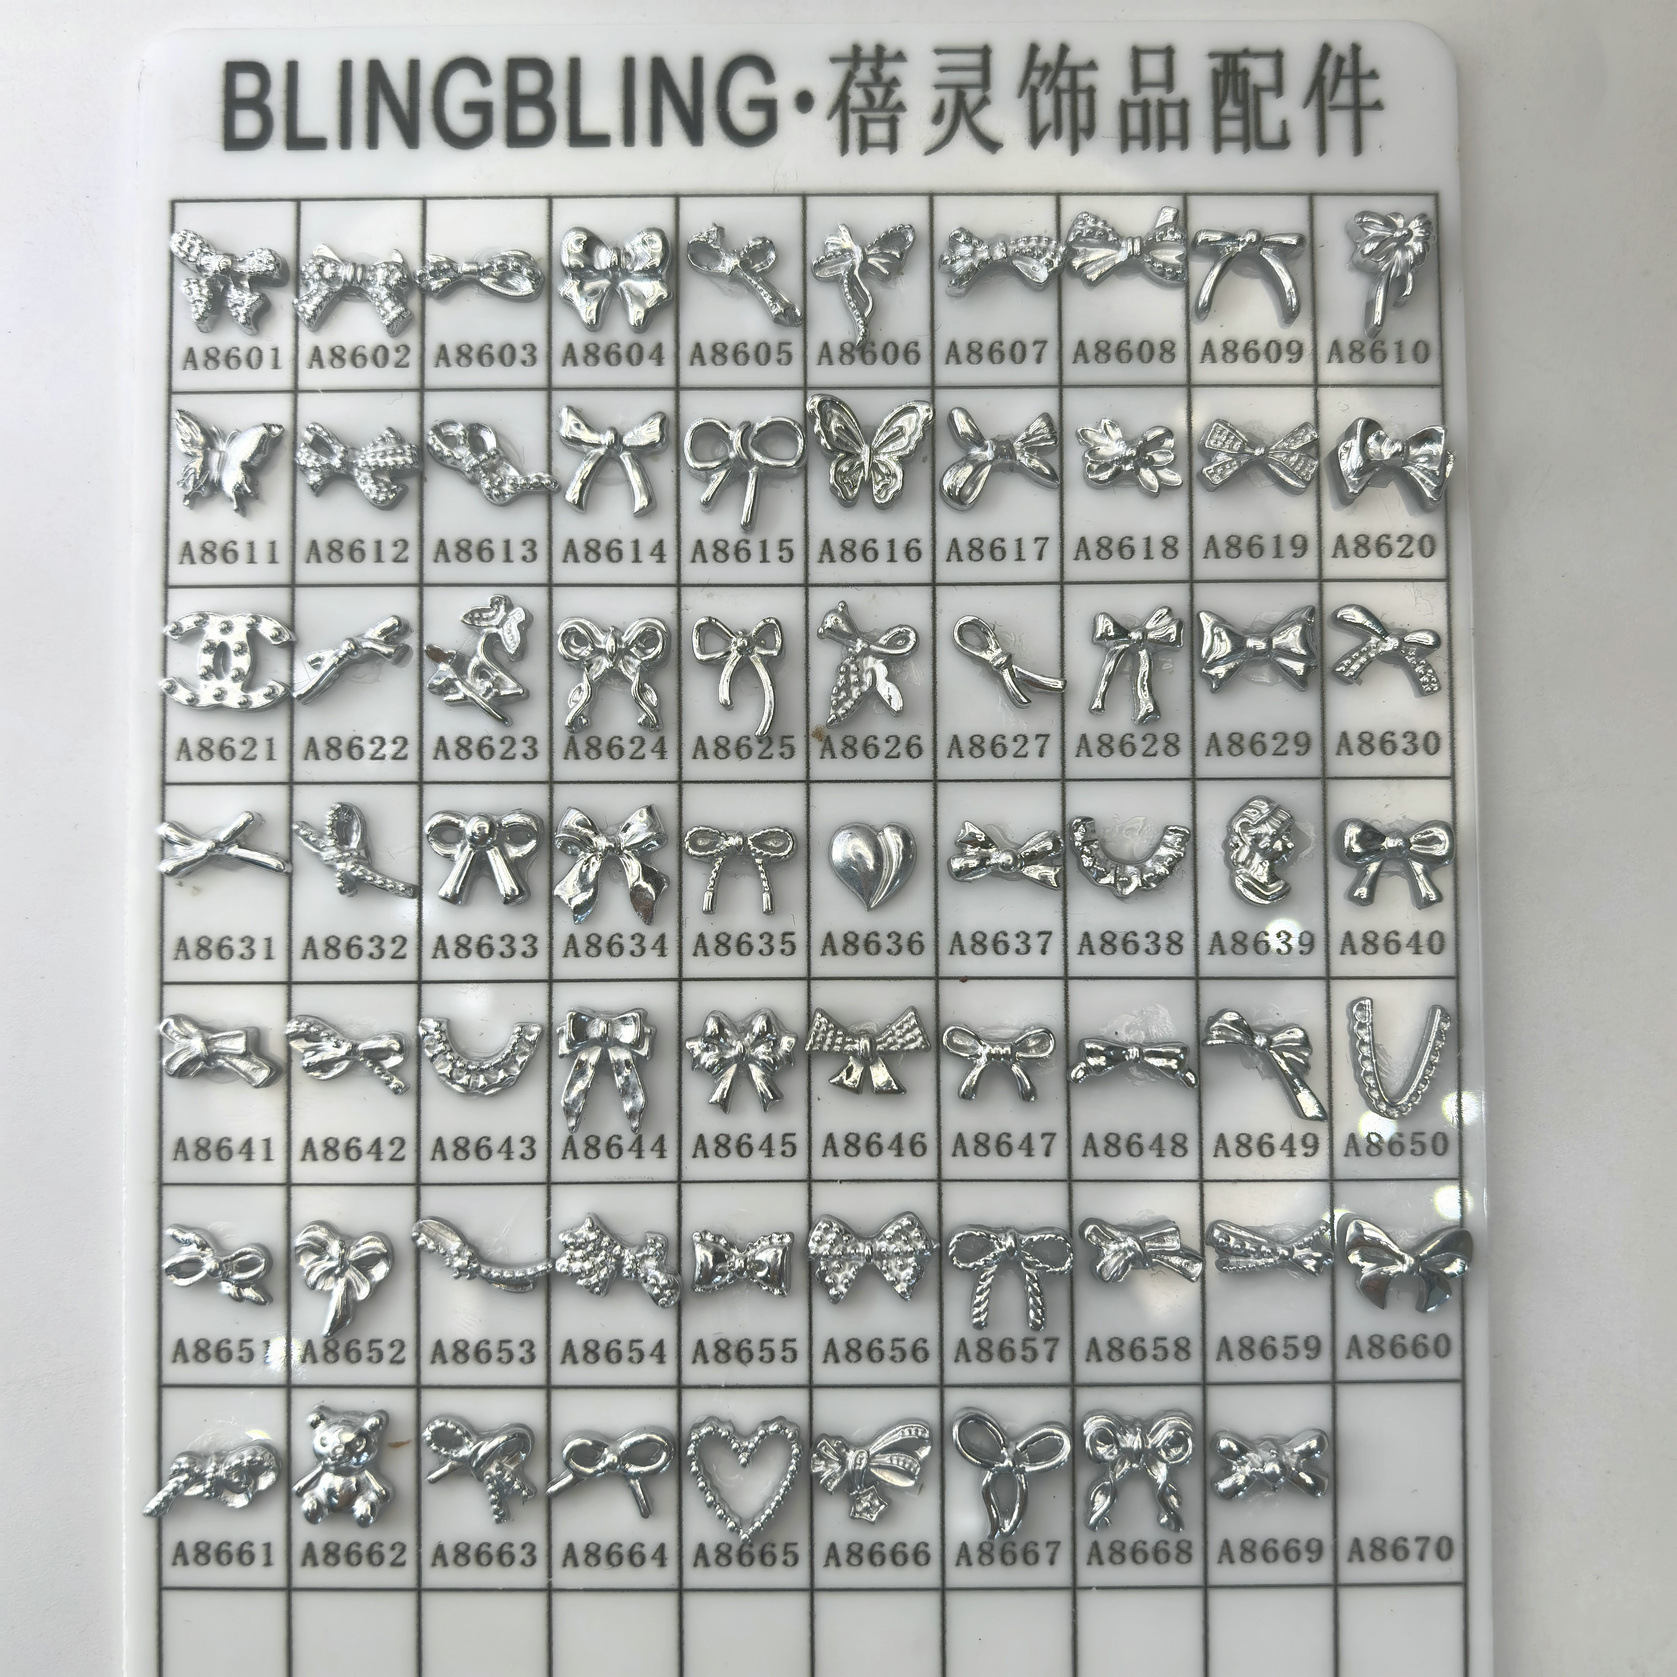 BLINGBLING·蓓灵饰品配件
A8601 A8602 A8603 A8604 A8605 A8606 A8607 A8608 A8609 A8610
A8611 A8612 A8613 A8614 A8615 A8616 A8617 A8618 A8619 A8620
A8621 A8622 A8623 A8624 A8625 A8626 A8627 A8628 A8629 A8630
A8631 A8632 A8633 A8634 A8635 A8636 A8637 A8638 A8639 A8640
A8641 A8642 A8643 A8644 A8645 A8646 A8647 A8648 A8649 A8650
A8651 A8652 A8653 A8654 A8655 A8656 A8657 A8658 A8659 A8660
A8661 A8662 A8663 A8664 A8665 A8666 A8667 A8668 A8669 A8670